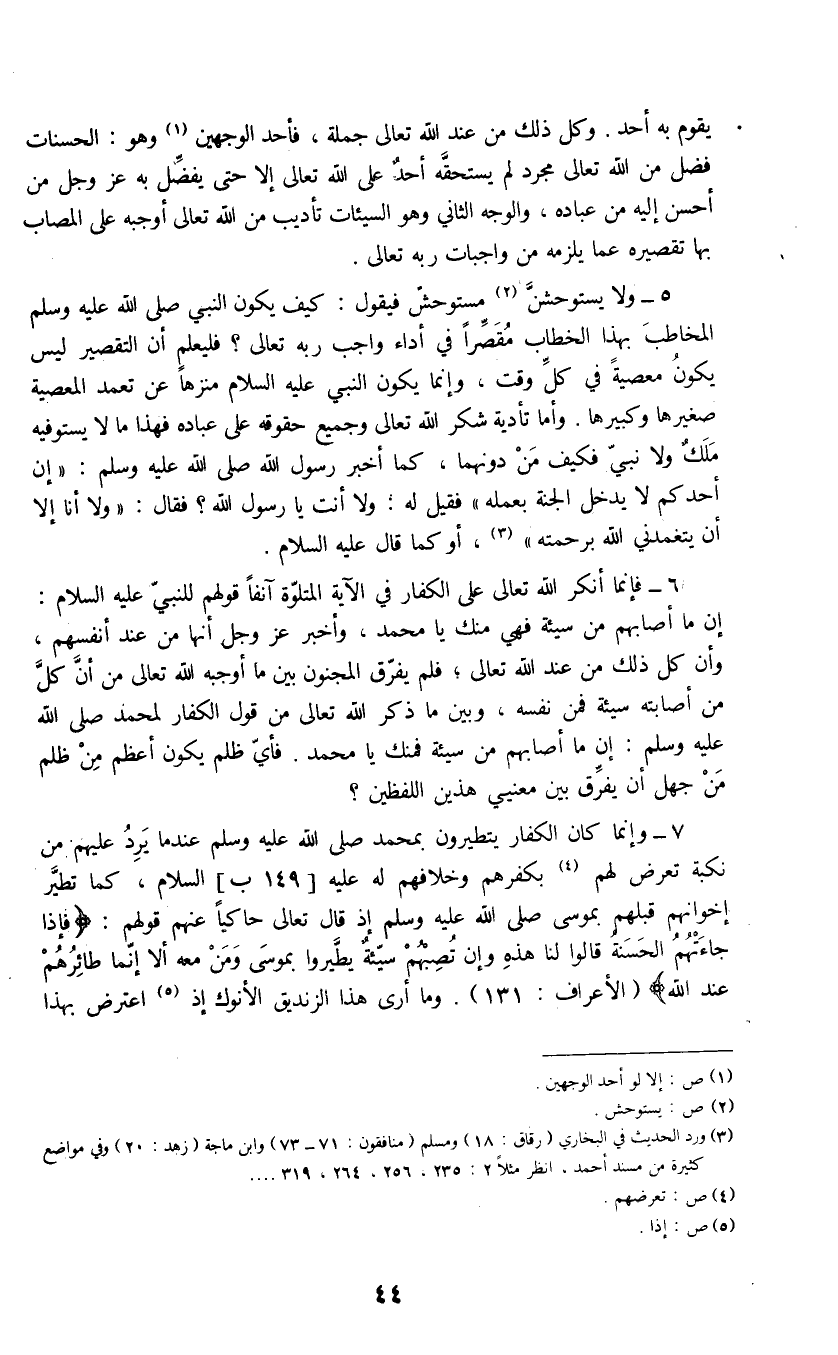 يقوم به أحد . وكل ذلك من عند الله تعالى جملة ، فأحد الوجهين (١) وهو : الحسنات
فضل من الله تعالى مجرد لم يستحقَّه أحدٌ على الله تعالى إلا حتى يفضِّل به عز وجل من
أحسن إليه من عباده ، والوجه الثاني وهو السيئات تأديب من الله تعالى أوجبه على المصاب
بها تقصيره عما يلزمه من واجبات ربه تعالى .
٥ ــ ولا يستوحشنَّ (٢) مستوحشٌ فيقول : كيف يكون النبي صلى الله عليه وسلم
المخاطبَ بهذا الخطاب مُقَصِّراً في أداء واجب ربه تعالى ؟ فليعلم أن التقصير ليس
يكونُ معصيةً في كلِّ وقت ، وإنما يكون النبي عليه السلام منزهاً عن تعمد المعصية
صغيرها وكبيرها . وأما تأدية شكر الله تعالى وجميع حقوقه على عباده فهذا ما لا يستوفيه
مَلَكٌ ولا نبيّ فكيف مَنْ دونهما ، كما أخبر رسول الله صلى الله عليه وسلم : « إن
أحدكم لا يدخل الجنة بعمله » فقيل له : ولا أنت يا رسول الله ؟ فقال : « ولا أنا إلا
أن يتغمدني الله برحمته » (٣) ، أو كما قال عليه السلام .
٦ ــ فإنما أنكر الله تعالى على الكفار في الآية المتلوّة آنفاً قولهم للنبيّ عليه السلام :
إن ما أصابهم من سيئة فهي منك يا محمد ، وأخبر عز وجل أنها من عند أنفسهم ،
وأن كل ذلك من عند الله تعالى ؛ فلم يفرّق المجنون بين ما أوجبه الله تعالى من أنَّ كلَّ
من أصابته سيئة فمن نفسه ، وبين ما ذكر الله تعالى من قول الكفار لمحمد صلى الله
عليه وسلم : إن ما أصابهم من سيئة فمنك يا محمد . فأيّ ظلم يكون أعظم مِنْ ظلم
مَنْ جهل أن يفرِّق بين معنيي هذين اللفظين ؟
٧ ــ وإنما كان الكفار يتطيرون بمحمد صلى الله عليه وسلم عندما يَرِدُ عليهم من
نكبة تعرض لهم (٤) بكفرهم وخلافهم له عليه [ ١٤٩ ب ] السلام ، كما تطيَّر
إخوانهم قبلهم بموسى صلى الله عليه وسلم إذ قال تعالى حاكياً عنهم قولهم : ﴿ فإذا
جاءَتْهُمُ الحَسَنةُ قالوا لنا هذهِ وإن تُصِبْهُمْ سيّئةٌ يطَّيروا بموسَى وَمَنْ معه ألا إنّما طائِرُهُمْ
عند الله ﴾ ( الأعراف : ١٣١ ) . وما أرى هذا الزنديق الأنوك إذ (٥) اعترض بهذا
(١) ص : إلا لو أحد الوجهين .
(٢) ص : يستوحش .
(٣) ورد الحديث في البخاري ( رقاق : ١٨ ) ومسلم ( منافقون : ٧١ ــ ٧٣ ) وابن ماجة ( زهد : ٢٠ ) وفي مواضع
كثيرة من مسند أحمد ، انظر مثلاً ٢ : ٢٣٥ ، ٢٥٦ ، ٢٦٤ ، ٣١٩ ....
(٤) ص : تعرضهم .
(٥) ص : إذا .
٤٤